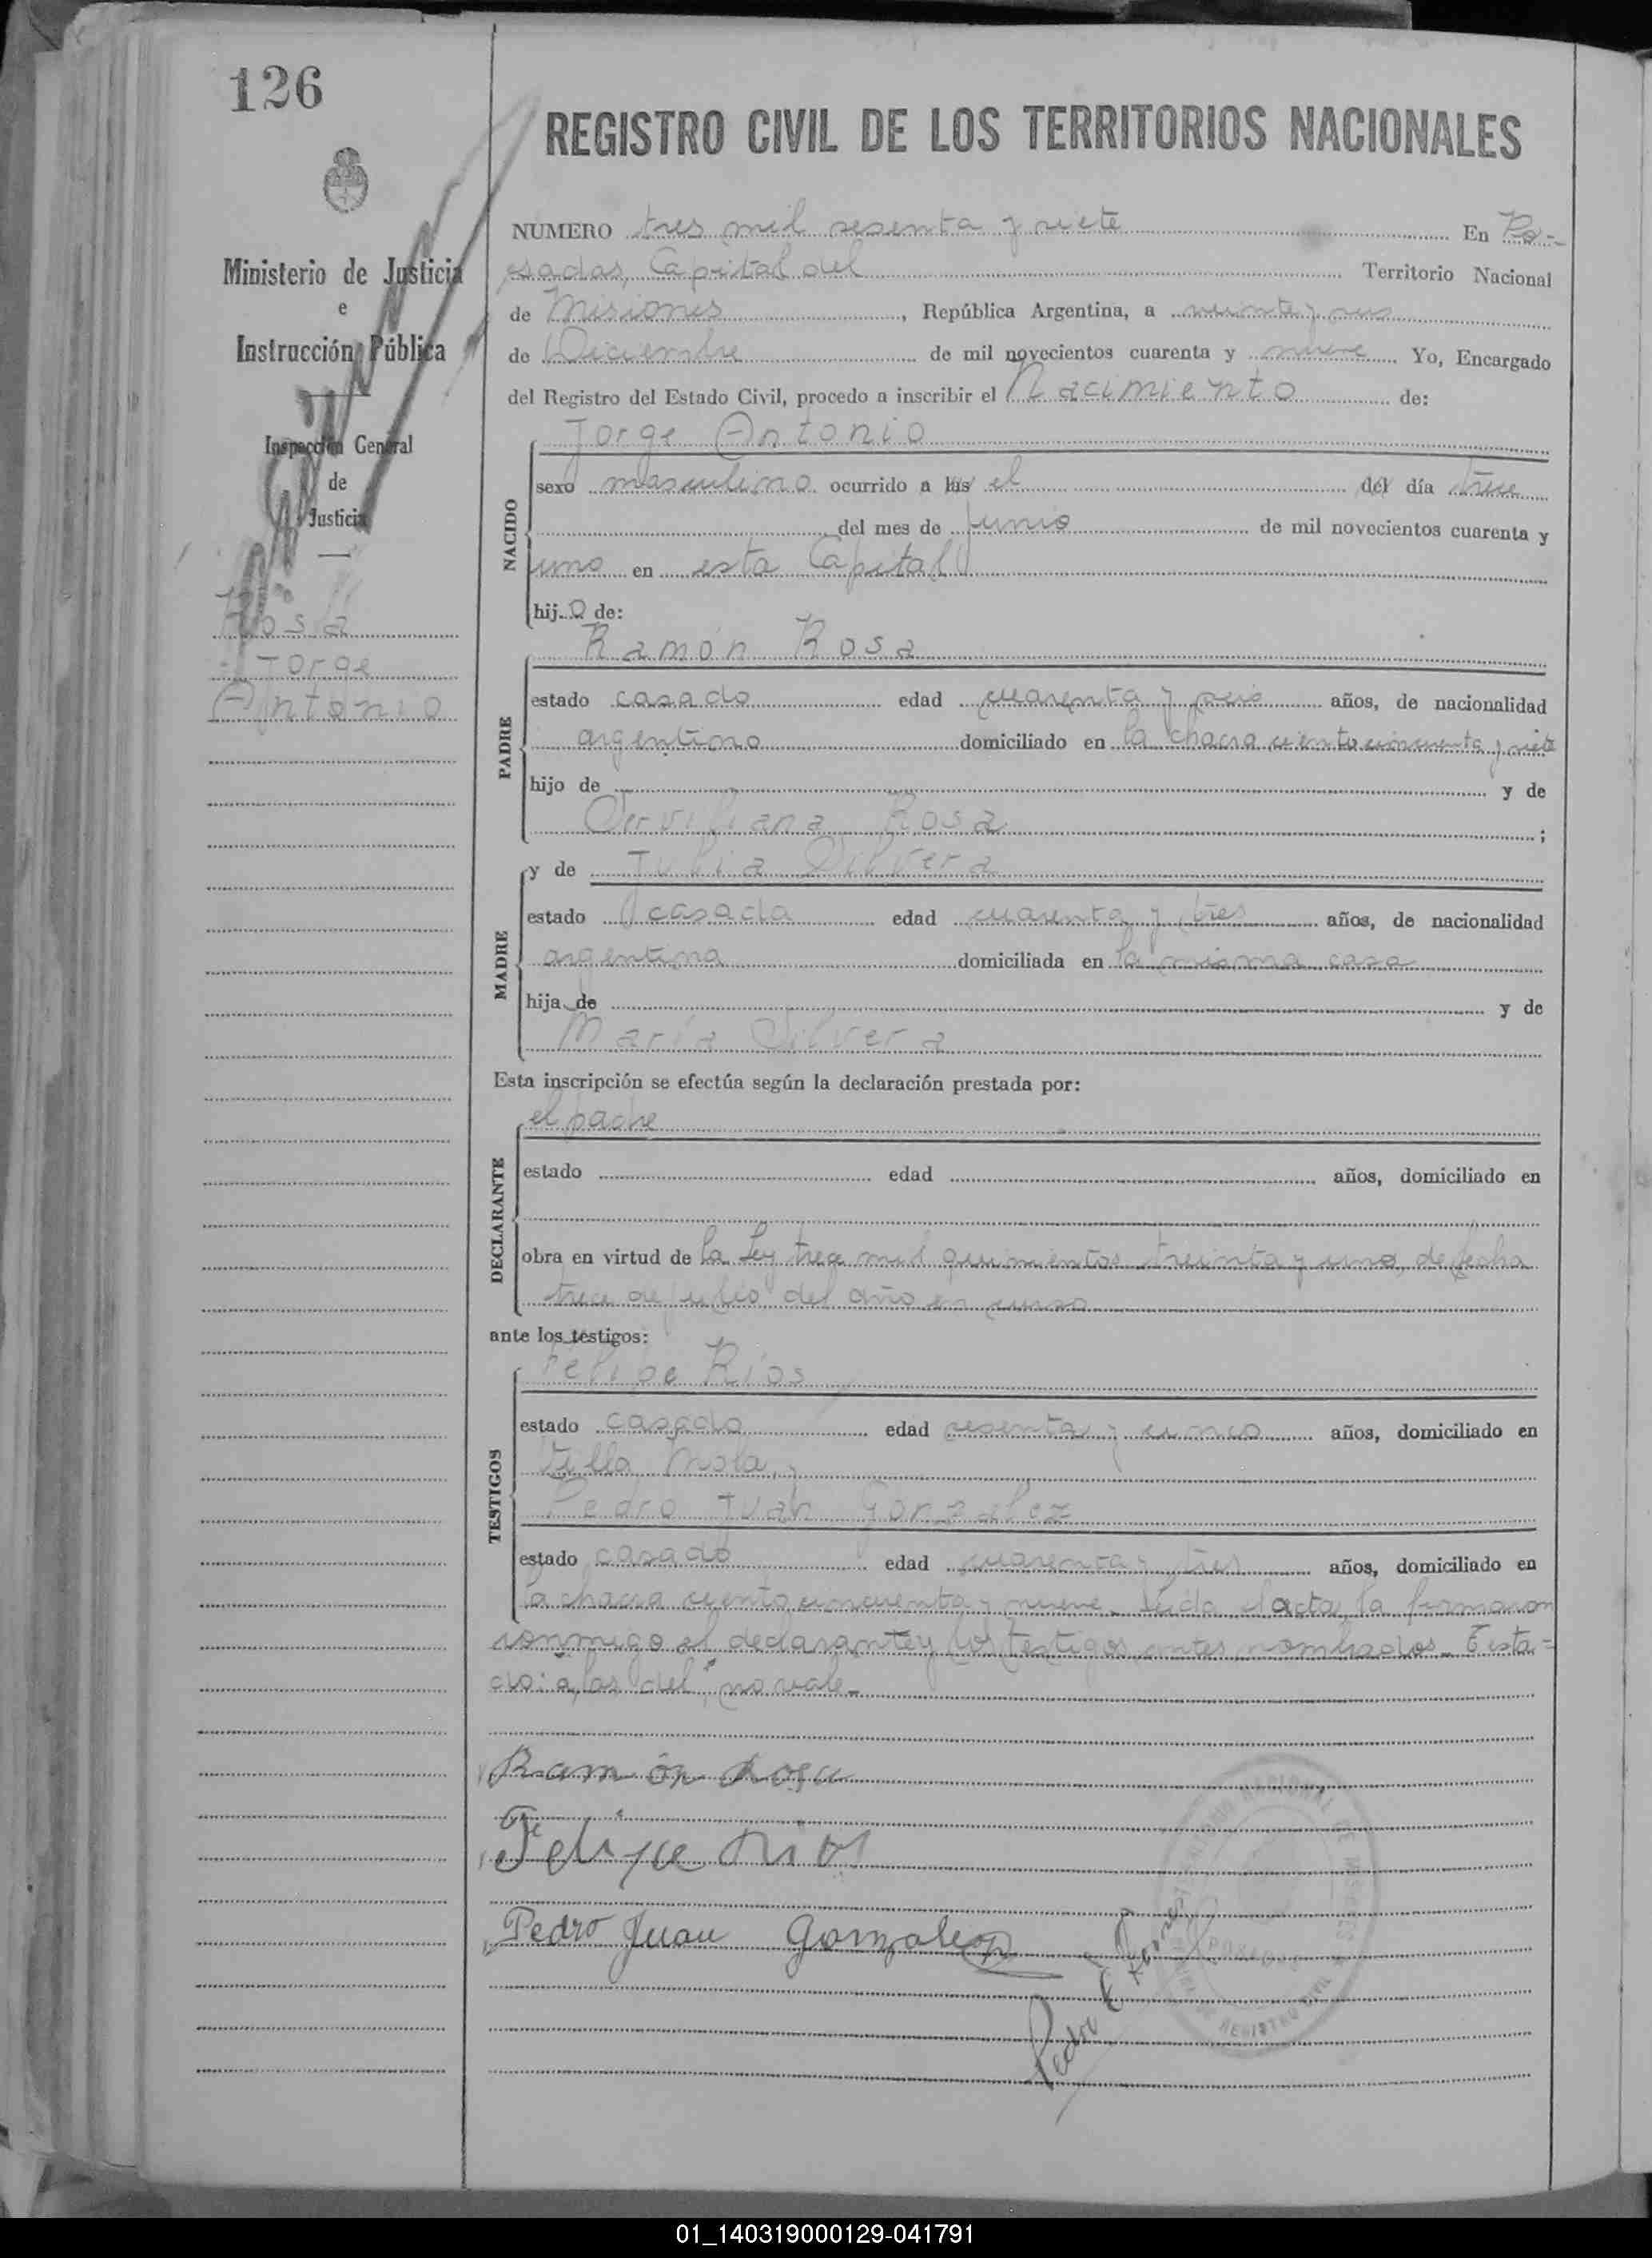 126
REGISTRO CIVIL DE LOS TERRITORIOS NACIONALES
Ministerio de Justicia
e
Instrucción Pública
Inspección General
de
Justicia
Rosa
Jorge
Antonio
NUMERO tres mil sesenta y siete En Po-
sadas, Capital del Territorio Nacional
de Misiones, República Argentina, a veinte y seis
de Diciembre de mil novecientos cuarenta y nueve Yo, Encargado
del Registro del Estado Civil, procedo a inscribir el Nacimiento de:
NACIDO
Jorge Antonio
sexo masculino ocurrido a las el del día trece
del mes de Junio de mil novecientos cuarenta y
uno en esta Capital
hijo de:
PADRE
Ramón Rosa
estado casado edad cuarenta y seis años, de nacionalidad
argentino domiciliado en la chacra ciento cincuenta y siete
hijo de y de
Serviliana Rosa ;
MADRE
y de Julia Silvera
estado casada edad cuarenta y tres años, de nacionalidad
argentina domiciliada en la misma casa
hija de y de
María Silvera
Esta inscripción se efectúa según la declaración prestada por:
DECLARANTE
el padre
estado edad años, domiciliado en
obra en virtud de la Ley trece mil quinientos treinta y uno, de fecha
trece de julio del año en curso
ante los testigos:
TESTIGOS
Felipe Ríos
estado casado edad sesenta y cinco años, domiciliado en
Villa Mola, y
Pedro Juan Gonzalez
estado casado edad cuarenta y tres años, domiciliado en
la chacra ciento cincuenta y nueve. Leída el acta, la firmaron
conmigo el declarante y los testigos antes nombrados. Testa-
do: "a las del", no vale.
Ramón Rosa
Felipe Rios
Pedro Juan Gonzalez
Pedro E.
REGISTRO CIVIL
01_140319000129-041791